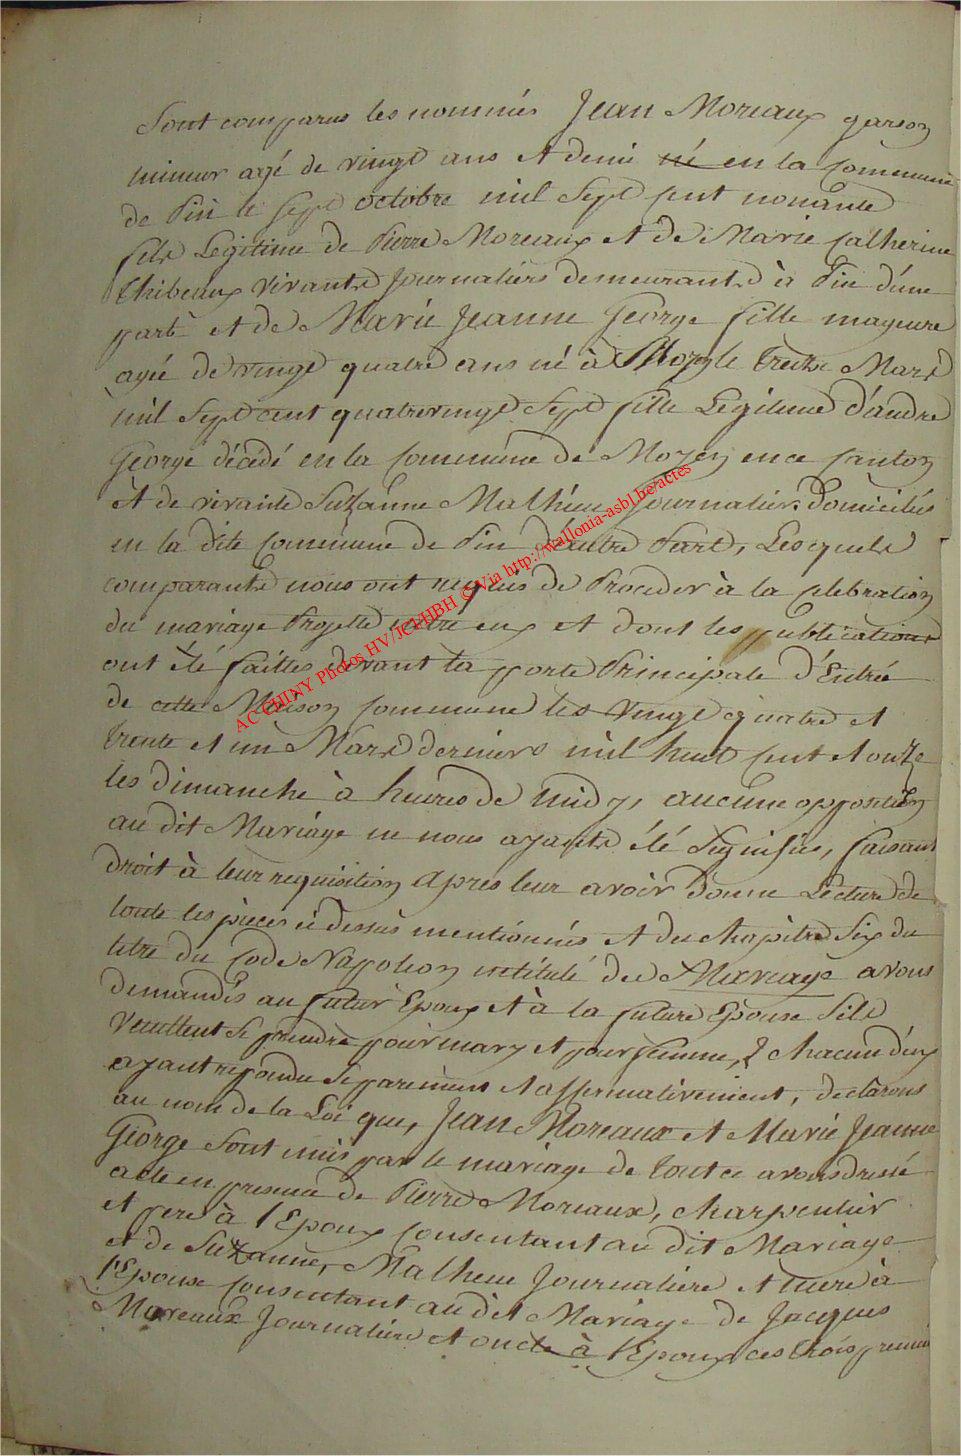 Sont comparus les nommés Jean Moreaux garson
mineur agé de vingt ans et demi né en la Commune
de Pin le sept octobre mil sept cent nonante
fils Legitime de Pierre Moreaux et de Marie Catherine
Thibeaux vivants Journaliers demeurants à Pin d'une
part et de Marie Jeanne George fille mageure
agée de vingt quatre ans né à le treize Mars
mil sept cent quatrevingt sept fille Legitime d'andre
George décédé en la Commune de Moyen en ce Canton
et de vivante Suzanne Mathieu Journaliers domiciliés
en la dite Commune de Pin d'autre Part, Lesquels
comparants nous ont requis de Proceder à la celebration
du mariage Projetté entre eux et dont les publications
ont été faittes devant la porte Principale d'Entrée
de cette Maison Commune les vingt quatre et
trente et un Mars derniers mil huit cent et onze
les dimanche à heures de midy, aucune opposition
au dit Mariage ne nous ayants été Signifié, faisant
droit à leur requisition apres leur avoir donné Lecture de
toute les pieces ci dessus mentionnés et du chapitre Six du
titre du Code Nappoleon intitulé du Mariage avons
demandés au futur Epoux et à la future Epouse Sils
veullent se prendre pour mary et pour femme, chacun d'eux
ayant repondu Separement et affirmativement, declarons
au nom de la Loi que, Jean Moreaux et Marie Jeanne
George Sont unis par le mariage de tout ce avons dressé
acte en presence de Pierre Moreaux, charpentier
et pere à l'Epoux Consentant au dit Mariage
et de Suzanne, Matheue Journaliere et mere à
l'Epouse Consentant au dit Mariage de Jacques
Moreaux Journaliere et oncle à l'Epoux ces trois premie
AC CHINY Photos HV/JCPHBH © Via http://wallonia-asbl.be/actes